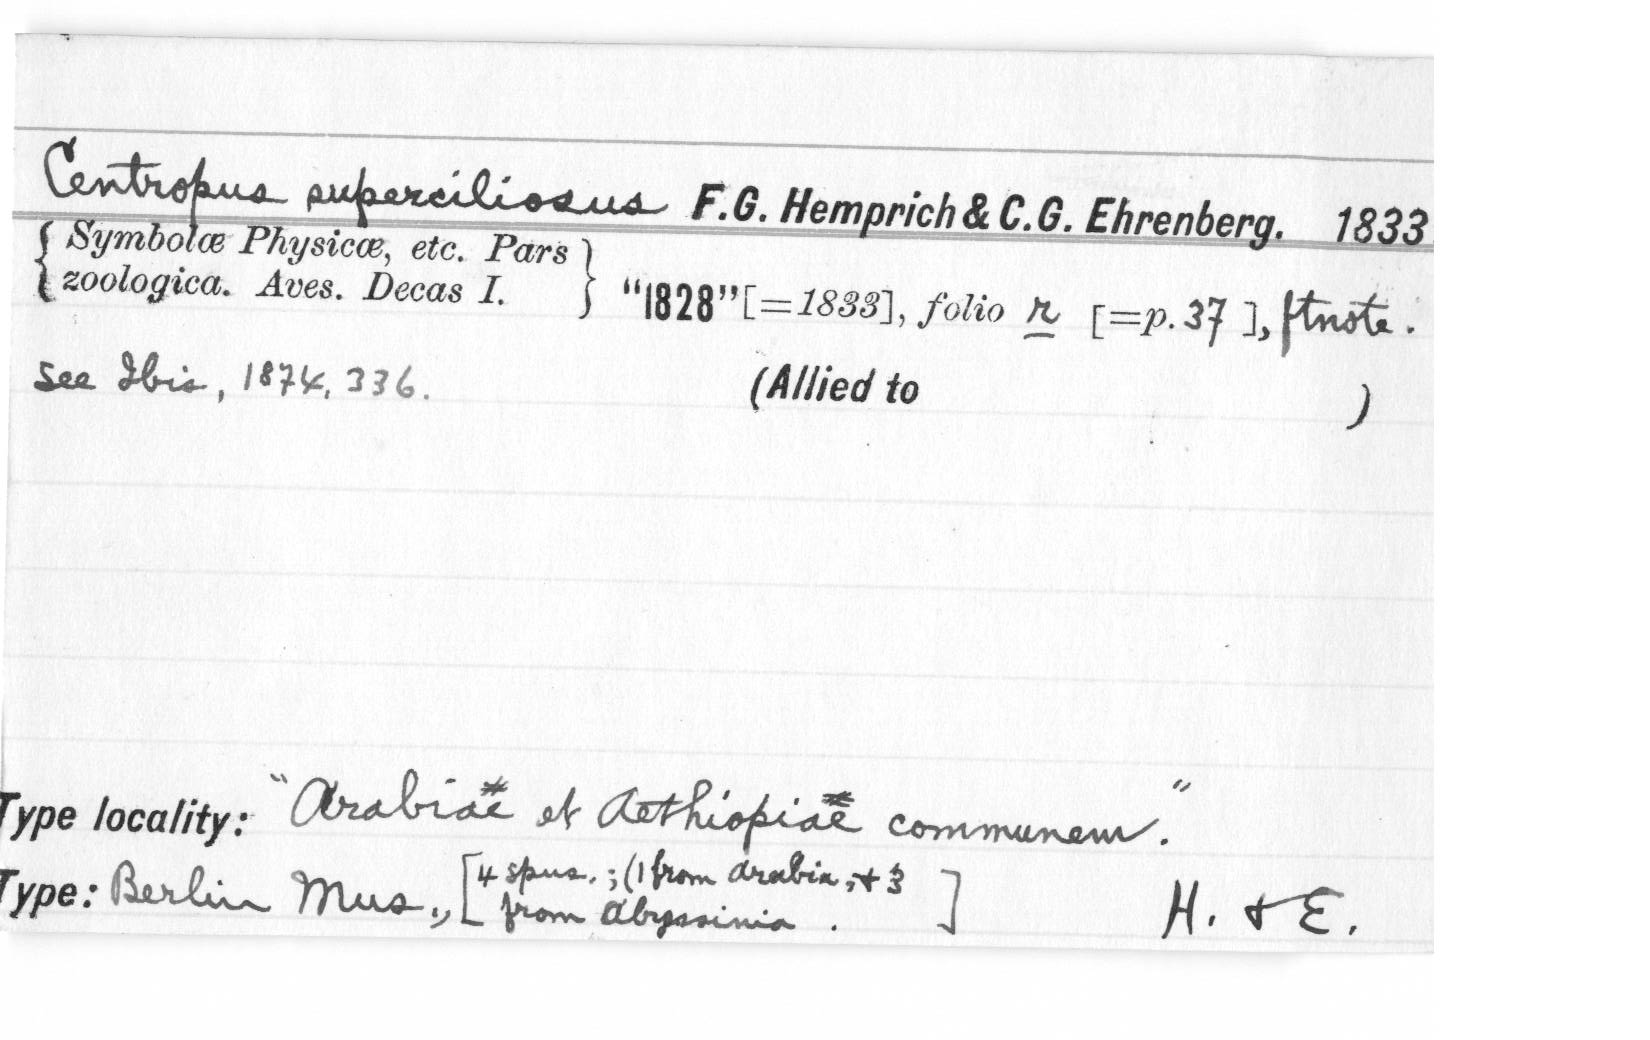 Centropus superciliosus F.G. Hemprich & C.G. Ehrenberg. 1833
{ Symbolæ Physicæ, etc. Pars
zoologica. Aves. Decas I. } "1828" [=1833], folio r [=p. 37 ], ftnote.
see Ibis, 1874, 336. (Allied to )
Type locality: "Arabiae et Aethiopiae communem."
Type: Berlin Mus., [4 spns.; (1 from Arabia, + 3
from Abyssinia. ] H. & E.